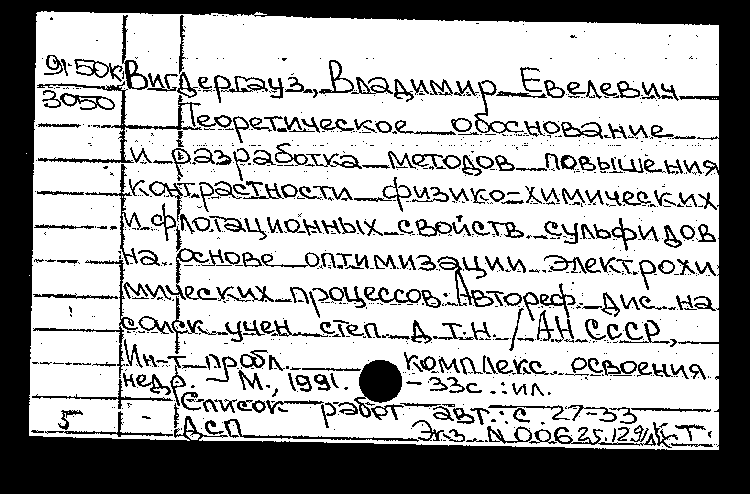 91-50к Вигдергауз, Владимир Евелевич
3050 Теоретическое обоснование
и разработка методов повышения
контрастности физико-химических
и флотационных свойств сульфидов
на основе оптимизации электрохи
мических процессов: Автореф. дис на
соиск учен степ д.т.н. / АН СССР,
Ин-т пробл. комплекс. освоения
недр. – М., 1991. – 33с.: ил.
Список работ авт.: с. 27-33
5 - ДСП Экз. N 006 25.12.91